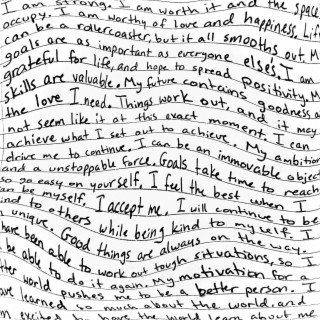 I am strong. I am worth it and the space
occupy. I am worthy of love and happiness. Life
can be a rollercoaster, but it all smooths out. M
goals are as important as everyone else's. I am
grateful for life, and hope to spread positivity. M
skills are valuable. My future contains goodness a
the love I need. Things work out, and it may
not seem like it at this exact moment. I can
achieve what I set out to achieve. My ambition
drive me to continue. I can be an immovable object
and a unstoppable force. Goals take time to reach
so go easy on yourself. I feel the best when I
an be myself. I accept me. I will continue to be
ind to others while being kind to my self. I
unique. Good things are always on the way.
have been able to work out tough situations, so I
be able to do it again. My motivation for a
tter world pushes me to be a better person. I
ave learned so much about the world, and
m excited to have the world learn about me